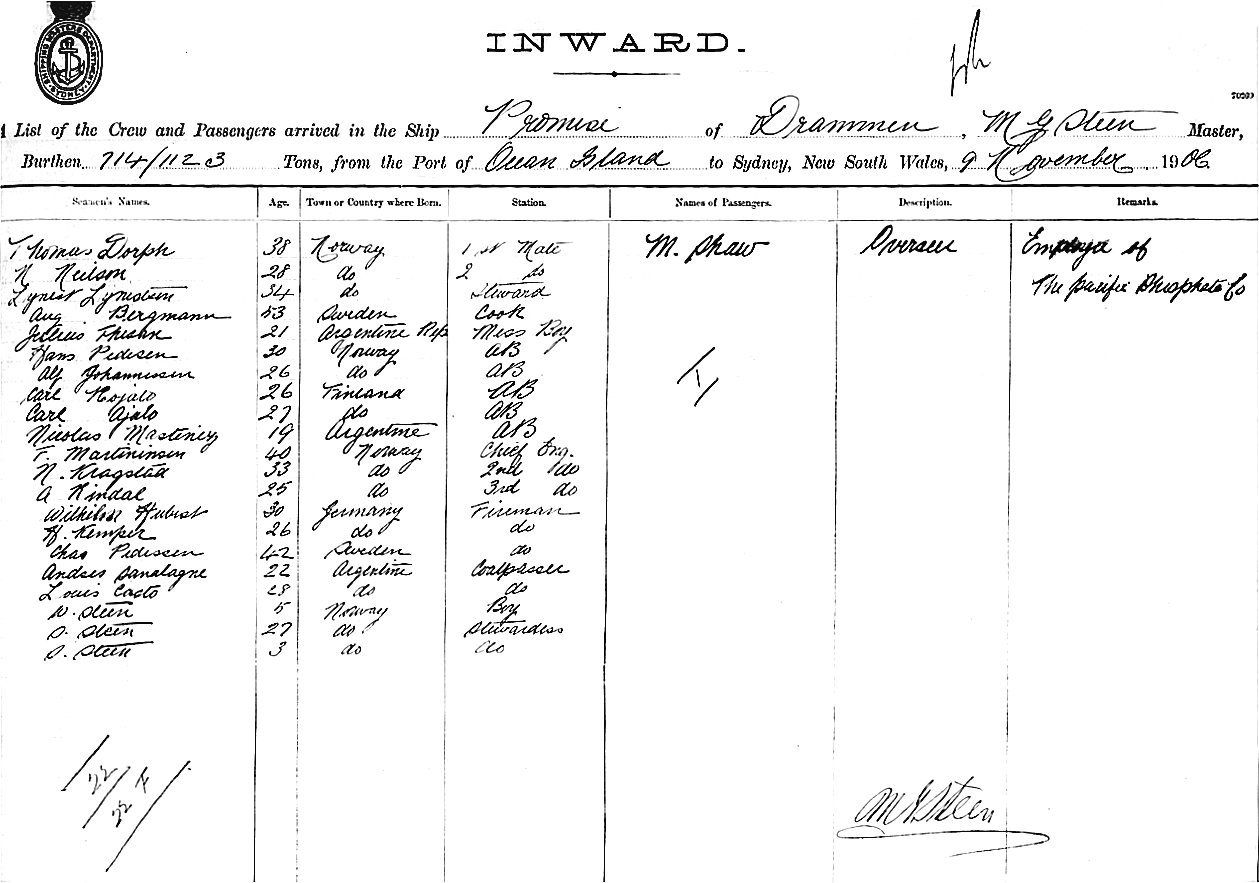 SHIPPING MASTERS DEPARTMENT SYDNEY
INWARD.
70209
List of the Crew and Passengers arrived in the Ship Promise of Drammen, M G Steen Master,
Burthen 714/1123 Tons, from the Port of Ocean Island to Sydney, New South Wales, 9 November 1906
Seamen's Names. Age. Town or Country where Born. Station. Names of Passengers. Description. Remarks.
Thomas Dorph 38 Norway 1st Mate M. Shaw Overseer Employe of
N Neilson 28 do 2 do The Pacific Phosphate Co
Lynest Lynestsen 34 do Steward
Aug Bergmann 53 Sweden Cook
Julius 21 Argentine Rep Mess Boy
Hans Pedesen 30 Norway AB
Alf Johannessen 26 do AB
Carl Kojalo 26 Finland AB
Carl Ajalo 27 do AB
Nicolas Mastiney 19 Argentine AB
F. Martininsen 40 Norway Chief Eng.
N. Kragstad 33 do 2nd do
A Rindal 25 do 3rd do
Hubert 30 Germany Fireman
H. Kemper 26 do do
Chas Pedessen 42 Sweden do
Andres Sanalagne 22 Argentine Coalpasser
Louis Casto 28 do do
W. Steen 5 Norway Boy
S. Steen 27 do Stewardess
S. Steen 3 do do
22
22
M G Steen